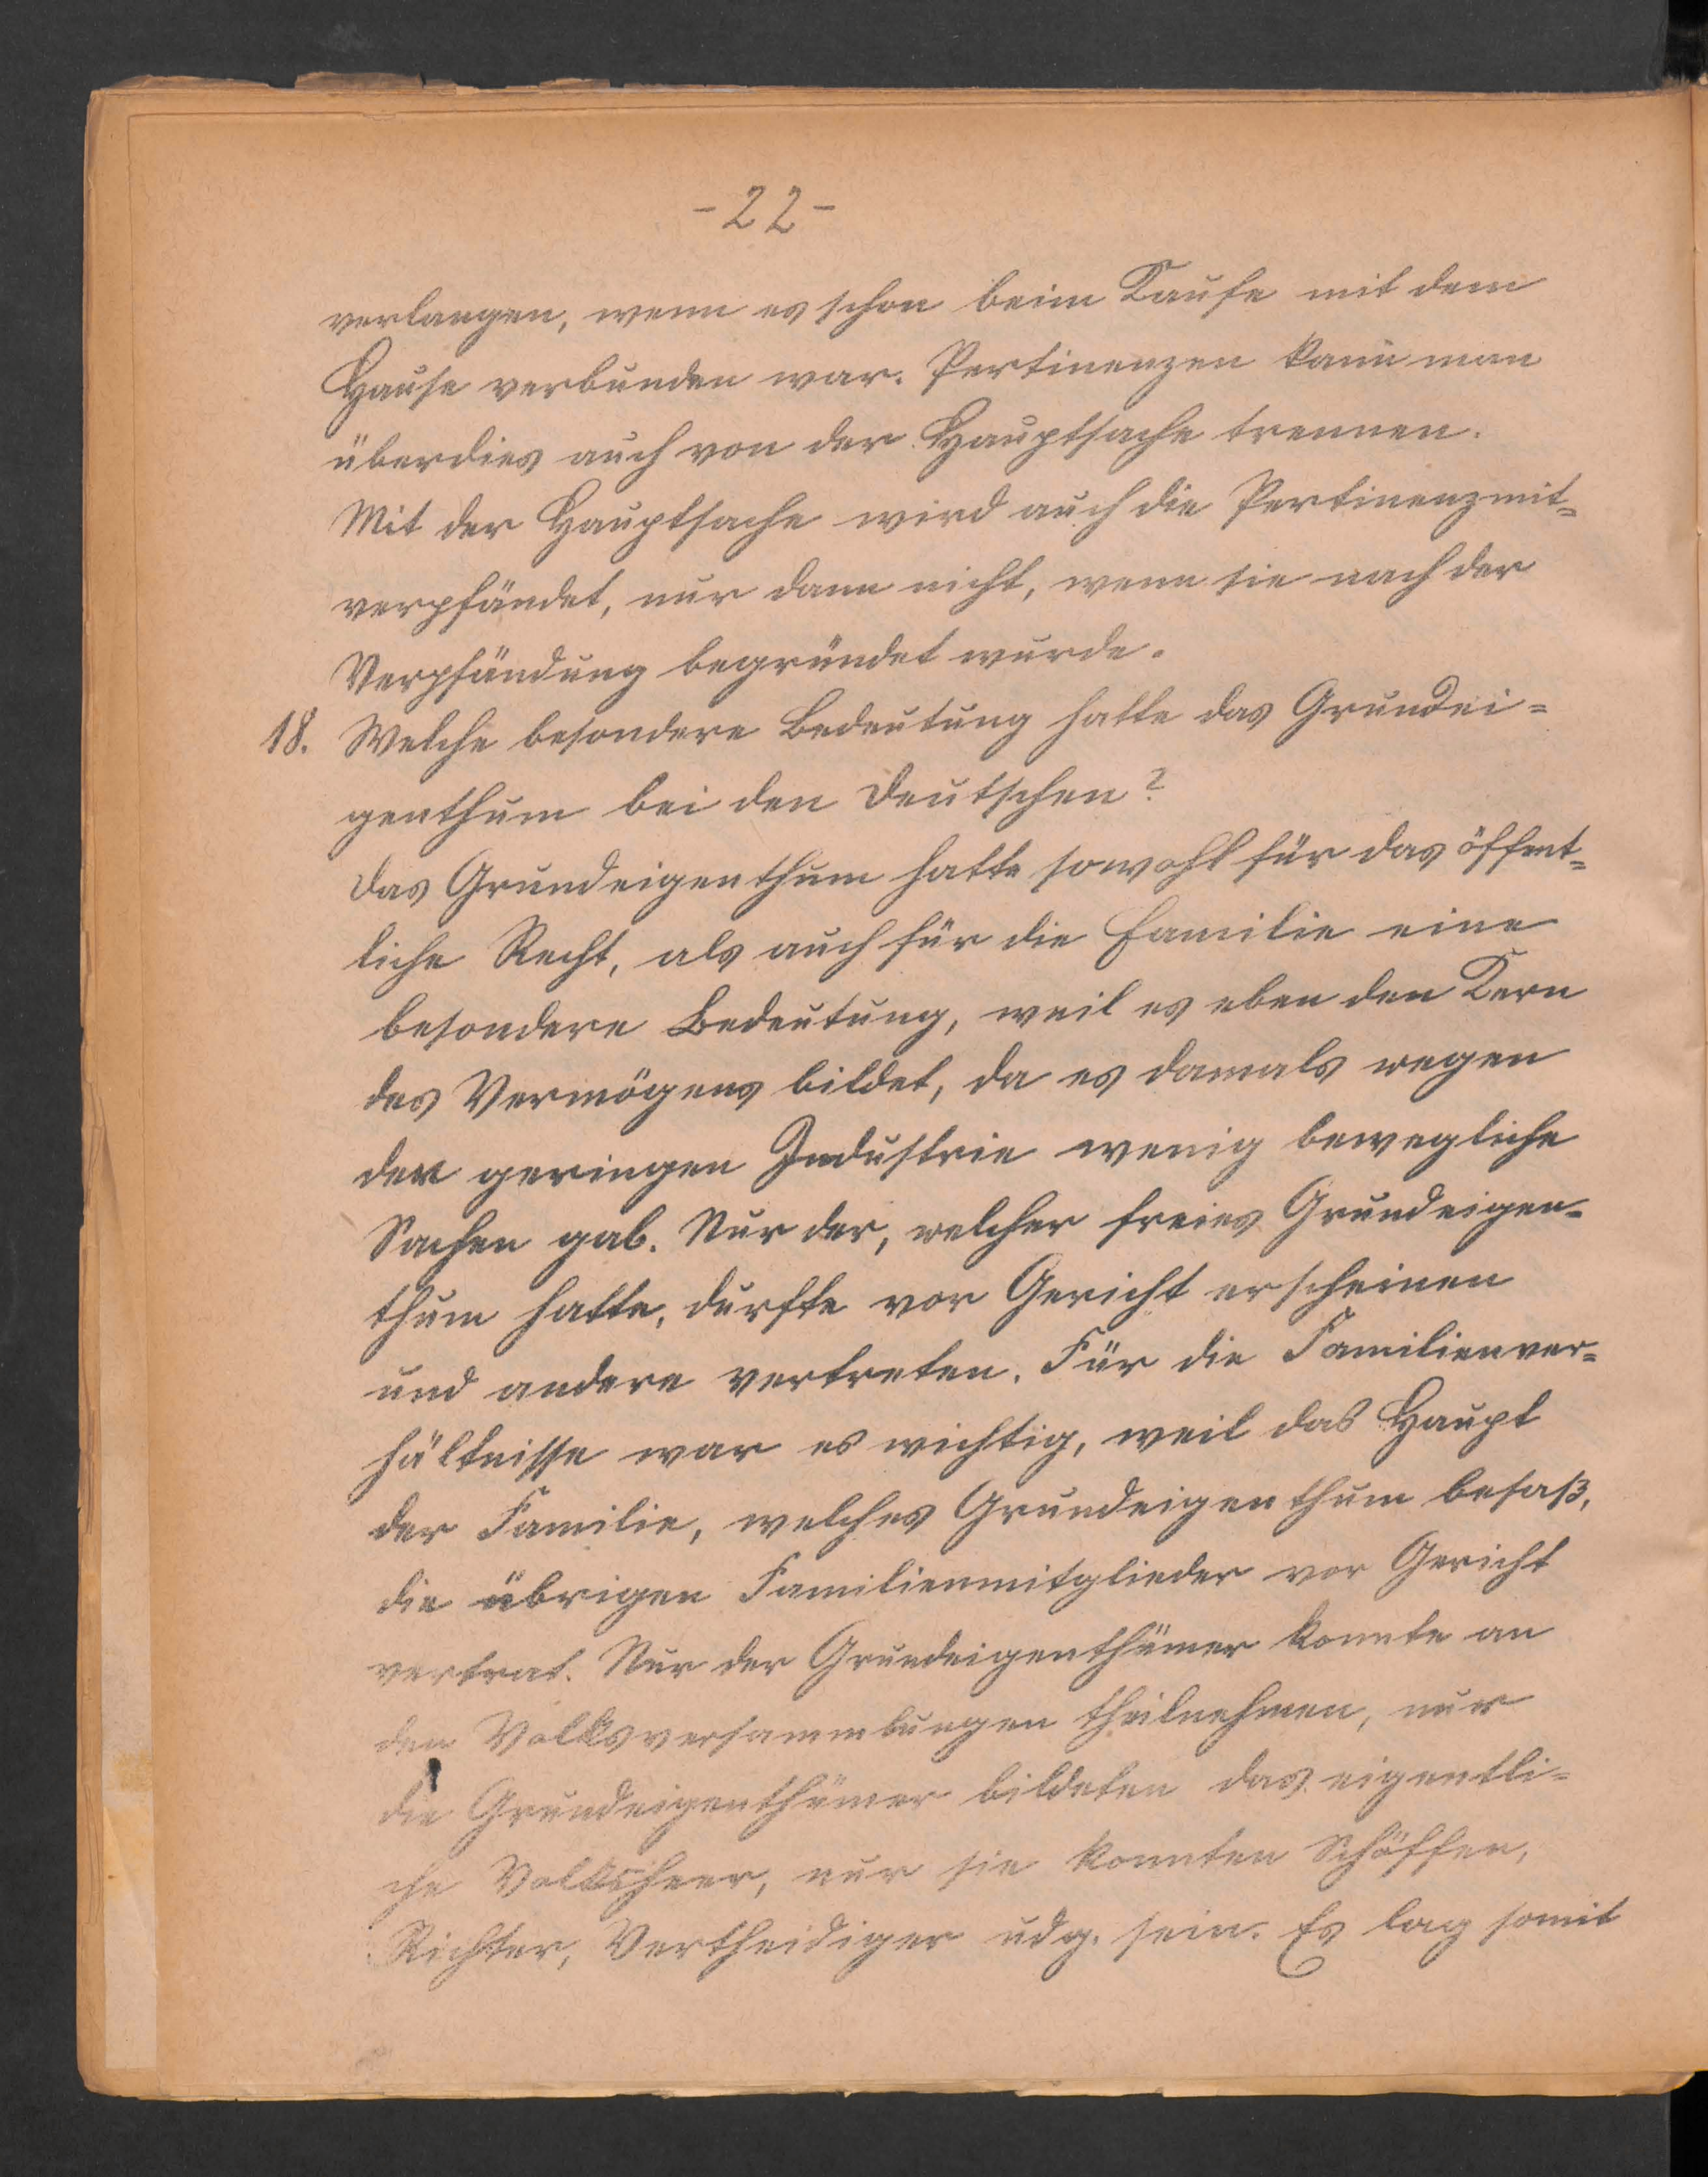 - 22 -
verlangen, wenn es schon beim Kaufe mit dem
Hause verbunden war. Pertinenzen kann man
überdies auch von der Hauptsache trennen.
Mit der Hauptsache wird auch die Pertinenz mit-
verpfändet, nur dann nicht, wenn sie nach der
Verpfändung begründet wurde.
18. Welche besondere Bedeutung hatte das Grundei-
genthum bei den Deutschen?
Das Grundeigenthum hatte sowohl für das öffent-
liche Recht, als auch für die Familie eine
besondere Bedeutung, weil es eben den Kern
des Vermögens bildet, da es damals wegen
der geringen Industrie wenig bewegliche
Sachen gab. Nur der, welcher freies Grundeigen-
thum hatte, durfte vor Gericht erscheinen
und andere vertreten. Für die Familienver-
hältnisse war es wichtig, weil das Haupt
der Familie, welches Grundeigenthum besaß,
die übrigen Familienmitglieder vor Gericht
vertrat. Nur der Grundeigenthümer konnte an
den Volksversammlungen theilnehmen, nur
die Grundeigenthümer bildeten das eigentli-
che Volksheer, nur sie konnten Schöffen,
Richter, Vertheidiger udg. sein. Es lag somit